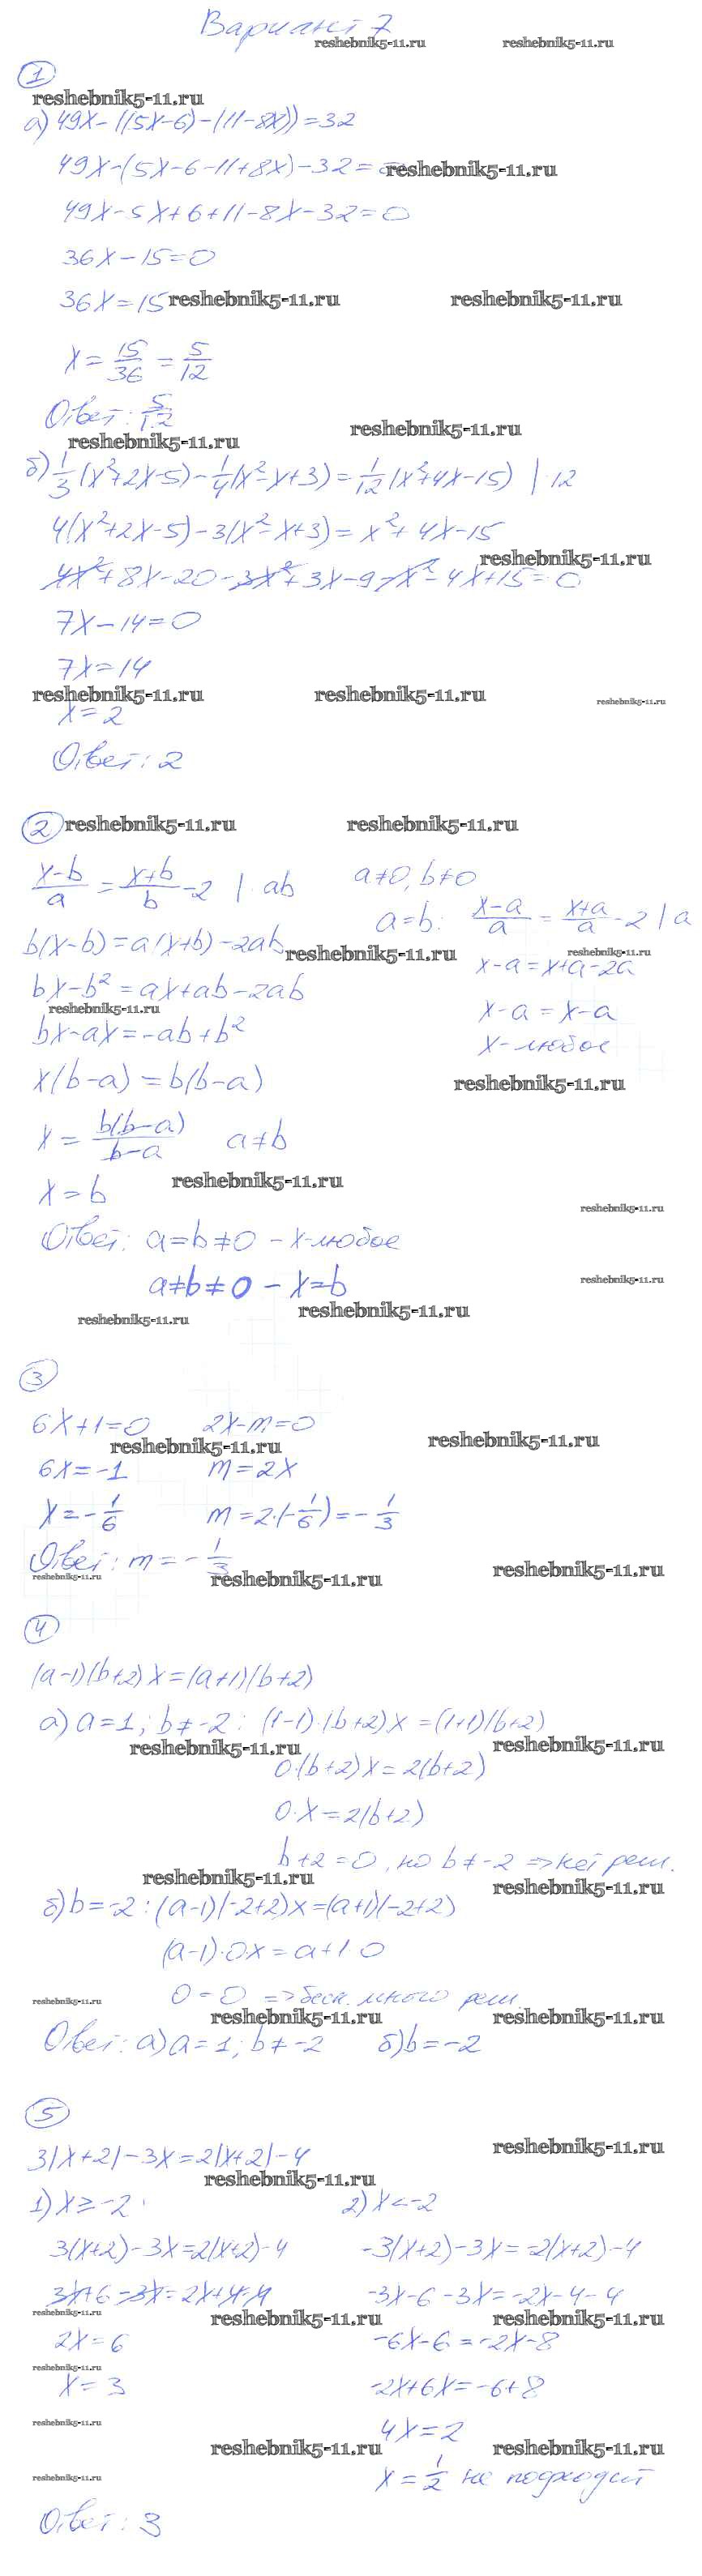 Вариант 7
reshebnik5-11.ru reshebnik5-11.ru
1
reshebnik5-11.ru
а) 49x-((5x-6)-(11-8x))=32
49x-(5x-6-11+8x)-32=
reshebnik5-11.ru
49x-5x+6+11-8x-32=0
36x-15=0
36x=15
reshebnik5-11.ru reshebnik5-11.ru
x=15/36=5/12
Ответ: 5/12
reshebnik5-11.ru
reshebnik5-11.ru
б) 1/3(x²+2x-5)-1/4(x²-x+3)=1/12(x²+4x-15) |·12
4(x²+2x-5)-3(x²-x+3)=x²+4x-15
reshebnik5-11.ru
4x²+8x-20-3x²+3x-9-x²-4x+15=0
7x-14=0
7x=14
reshebnik5-11.ru reshebnik5-11.ru reshebnik5-11.ru
x=2
Ответ: 2
2 reshebnik5-11.ru reshebnik5-11.ru
(x-b)/a=(x+b)/b-2 |·ab a≠0, b≠0
a=b: (x-a)/a=(x+a)/a-2 |·a
b(x-b)=a(x+b)-2ab
reshebnik5-11.ru reshebnik5-11.ru
x-a=x+a-2a
bx-b²=ax+ab-2ab
reshebnik5-11.ru
x-a=x-a
bx-ax=-ab+b²
x-любое
x(b-a)=b(b-a)
reshebnik5-11.ru
x=b(b-a)/(b-a) a≠b
x=b
reshebnik5-11.ru
reshebnik5-11.ru
Ответ: a=b≠0 - x-любое
a≠b≠0 - x=b
reshebnik5-11.ru
reshebnik5-11.ru
reshebnik5-11.ru
3
6x+1=0 2x-m=0
reshebnik5-11.ru reshebnik5-11.ru
6x=-1 m=2x
x=-1/6 m=2·(-1/6)=-1/3
Ответ: m=-1/3
reshebnik5-11.ru reshebnik5-11.ru reshebnik5-11.ru
4
(a-1)(b+2)x=(a+1)(b+2)
а) a=1; b≠-2: (1-1)·(b+2)x=(1+1)(b+2)
reshebnik5-11.ru reshebnik5-11.ru
0·(b+2)x=2(b+2)
0·x=2(b+2)
b+2=0, но b≠-2 => нет реш.
reshebnik5-11.ru reshebnik5-11.ru
б) b=-2: (a-1)(-2+2)x=(a+1)(-2+2)
(a-1)·0x=a+1·0
0=0 => беск. много реш.
reshebnik5-11.ru reshebnik5-11.ru reshebnik5-11.ru
Ответ: а) a=1; b≠-2 б) b=-2
5
reshebnik5-11.ru
3|x+2|-3x=2|x+2|-4
reshebnik5-11.ru
1) x≥-2 2) x<-2
3(x+2)-3x=2(x+2)-4 -3(x+2)-3x=-2(x+2)-4
3x+6-3x=2x+4-4 -3x-6-3x=-2x-4-4
reshebnik5-11.ru reshebnik5-11.ru reshebnik5-11.ru
2x=6 -6x-6=-2x-8
reshebnik5-11.ru
x=3 -2x+6x=-6+8
reshebnik5-11.ru
4x=2
reshebnik5-11.ru reshebnik5-11.ru
x=1/2 не подходит
reshebnik5-11.ru
Ответ: 3